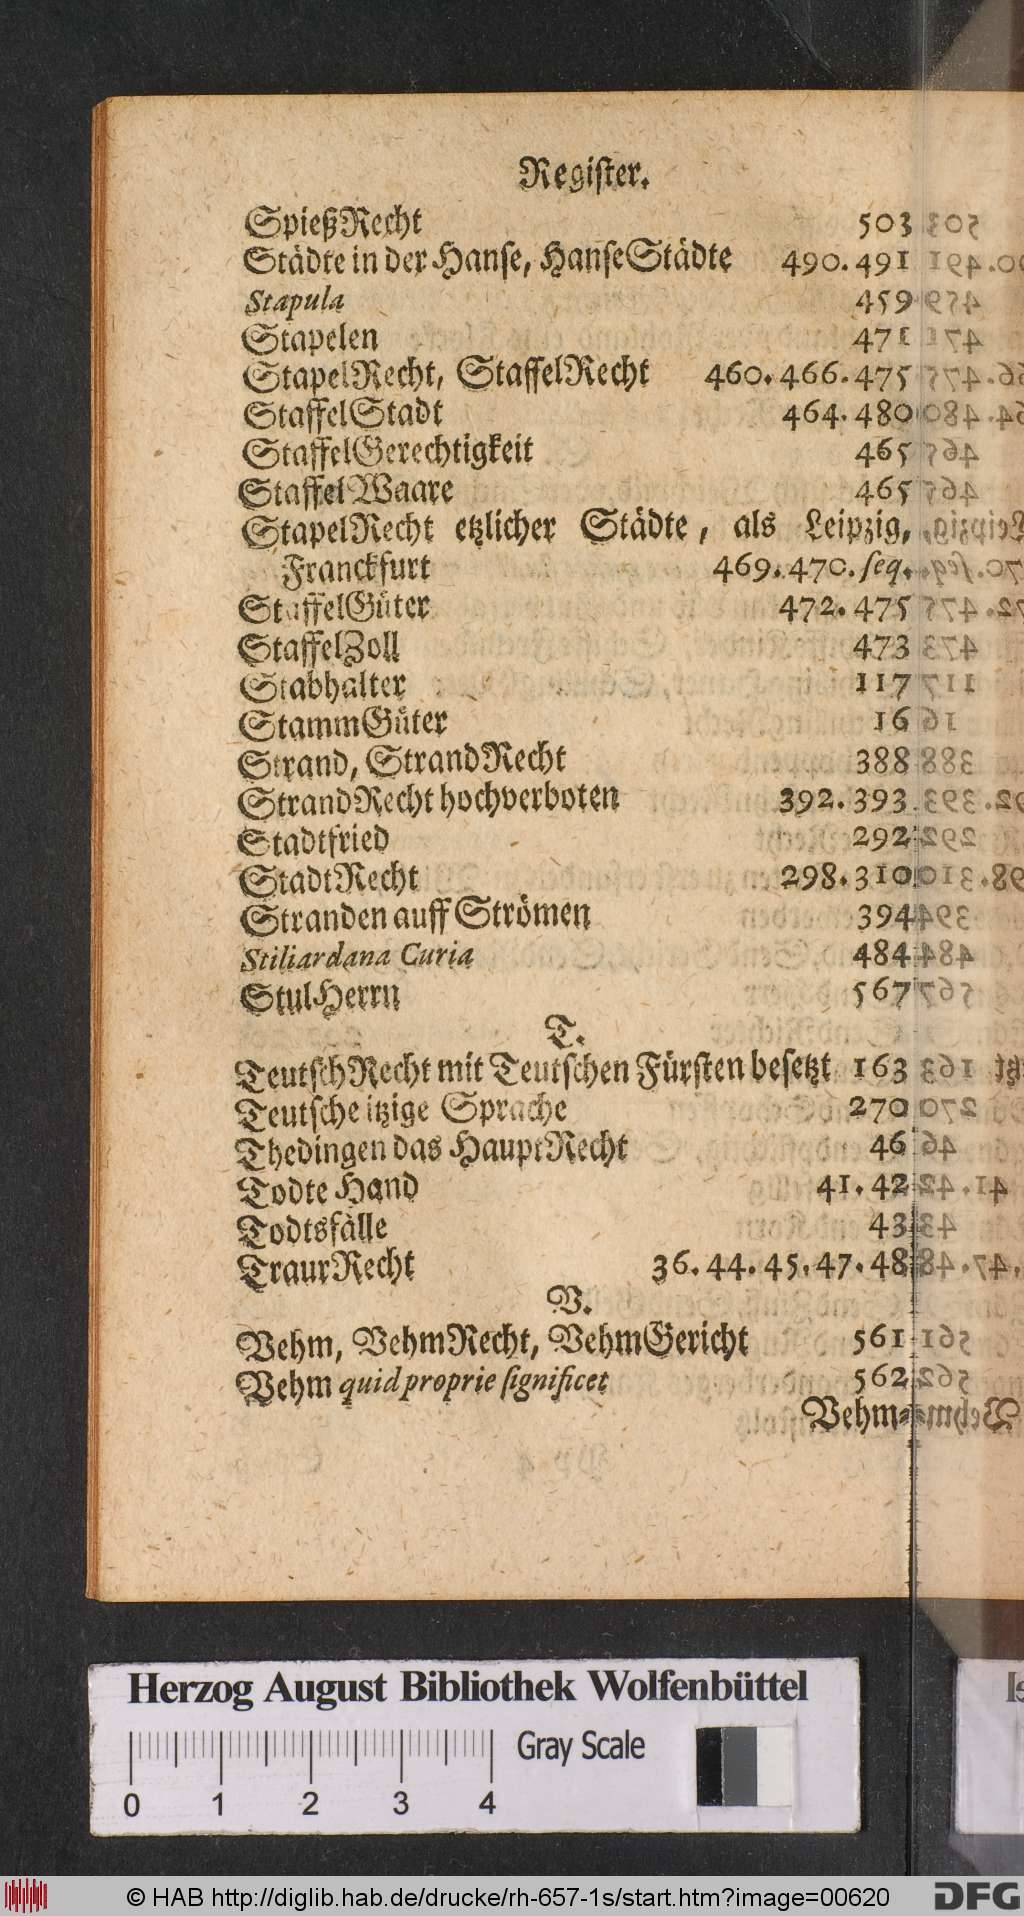 Register.
SpießRecht 503
Städte in der Hanse, HanseStädte 490. 491
Stapula 459
Stapelen 471
StapelRecht, StaffelRecht 460. 466. 475
StaffelStadt 464. 480
StaffelGerechtigkeit 465
Staffel Waare 465
StapelRecht etzlicher Städte, als Leipzig,
Franckfurt 469. 470. ſeq.
StaffelGüter 472. 475
StaffelZoll 473
Stabhalter 117
StammGüter 16
Strand, StrandRecht 388
StrandRecht hochverboten 392. 393
Stadtfried 292
StadtRecht 298. 310
Stranden auff Strömen 394
Stiliardana Curia 484
StulHerrn 567
T.
TeutſchRecht mit Teutſchen Fürſten beſetzt 163
Teutſche itzige Sprache 270
Thedingen das HauptRecht 46
Todte Hand 41. 42
Todtsfälle 43
TraurRecht 36. 44. 45. 47. 48
V.
Vehm, VehmRecht, VehmGericht 561
Vehm quid proprie ſignificet 562
Vehm-
Herzog August Bibliothek Wolfenbüttel
Gray Scale
0 1 2 3 4
© HAB http://diglib.hab.de/drucke/rh-657-1s/start.htm?image=00620
DFG